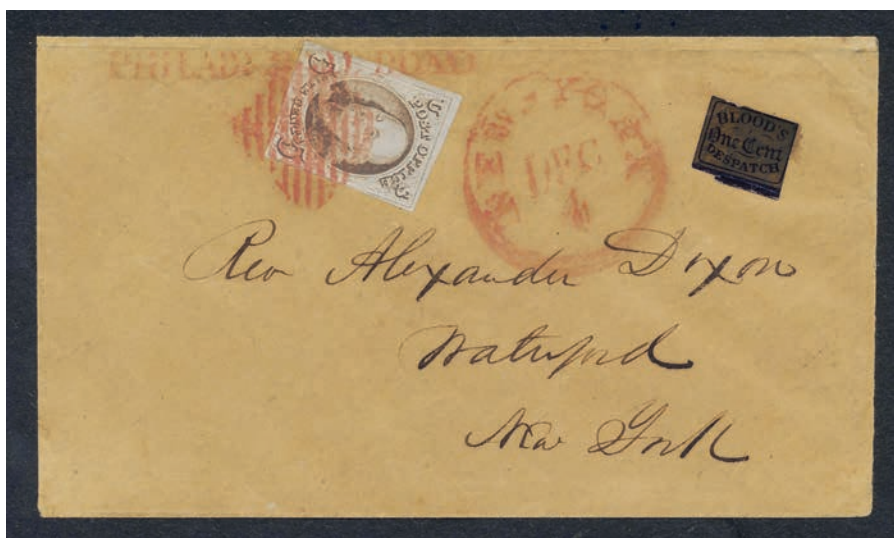 PHILADA RAIL ROAD
POST OFFICE
NEW-YORK
DEC
4
BLOOD'S
One Cent
DESPATCH
Rev Alexander Dixon
Waterford
New York